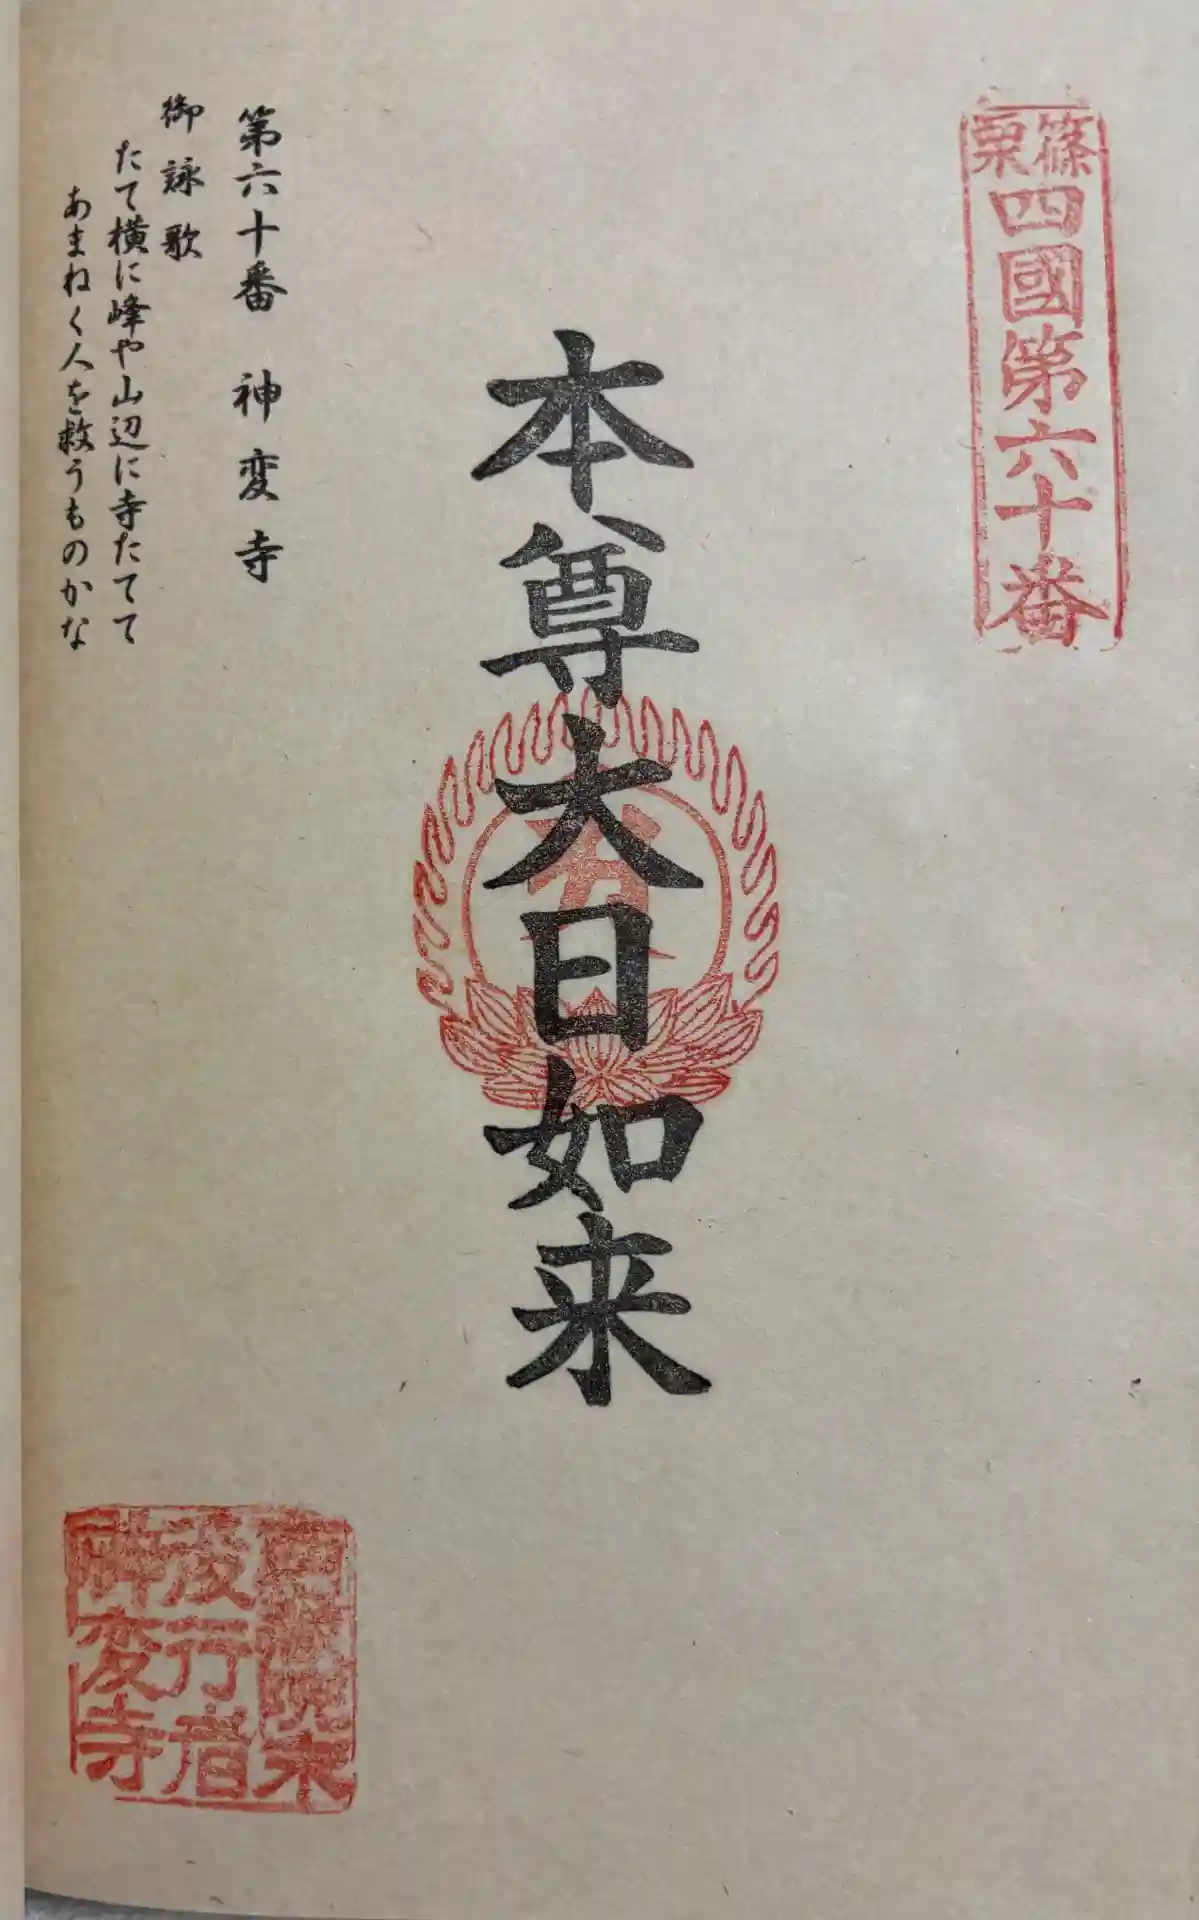 篠栗
四國第六十番
本尊大日如来
第六十番 神変寺
御詠歌
たて横に峰や山辺に寺たてて
あまねく人を救うものかな
役行者
神変寺